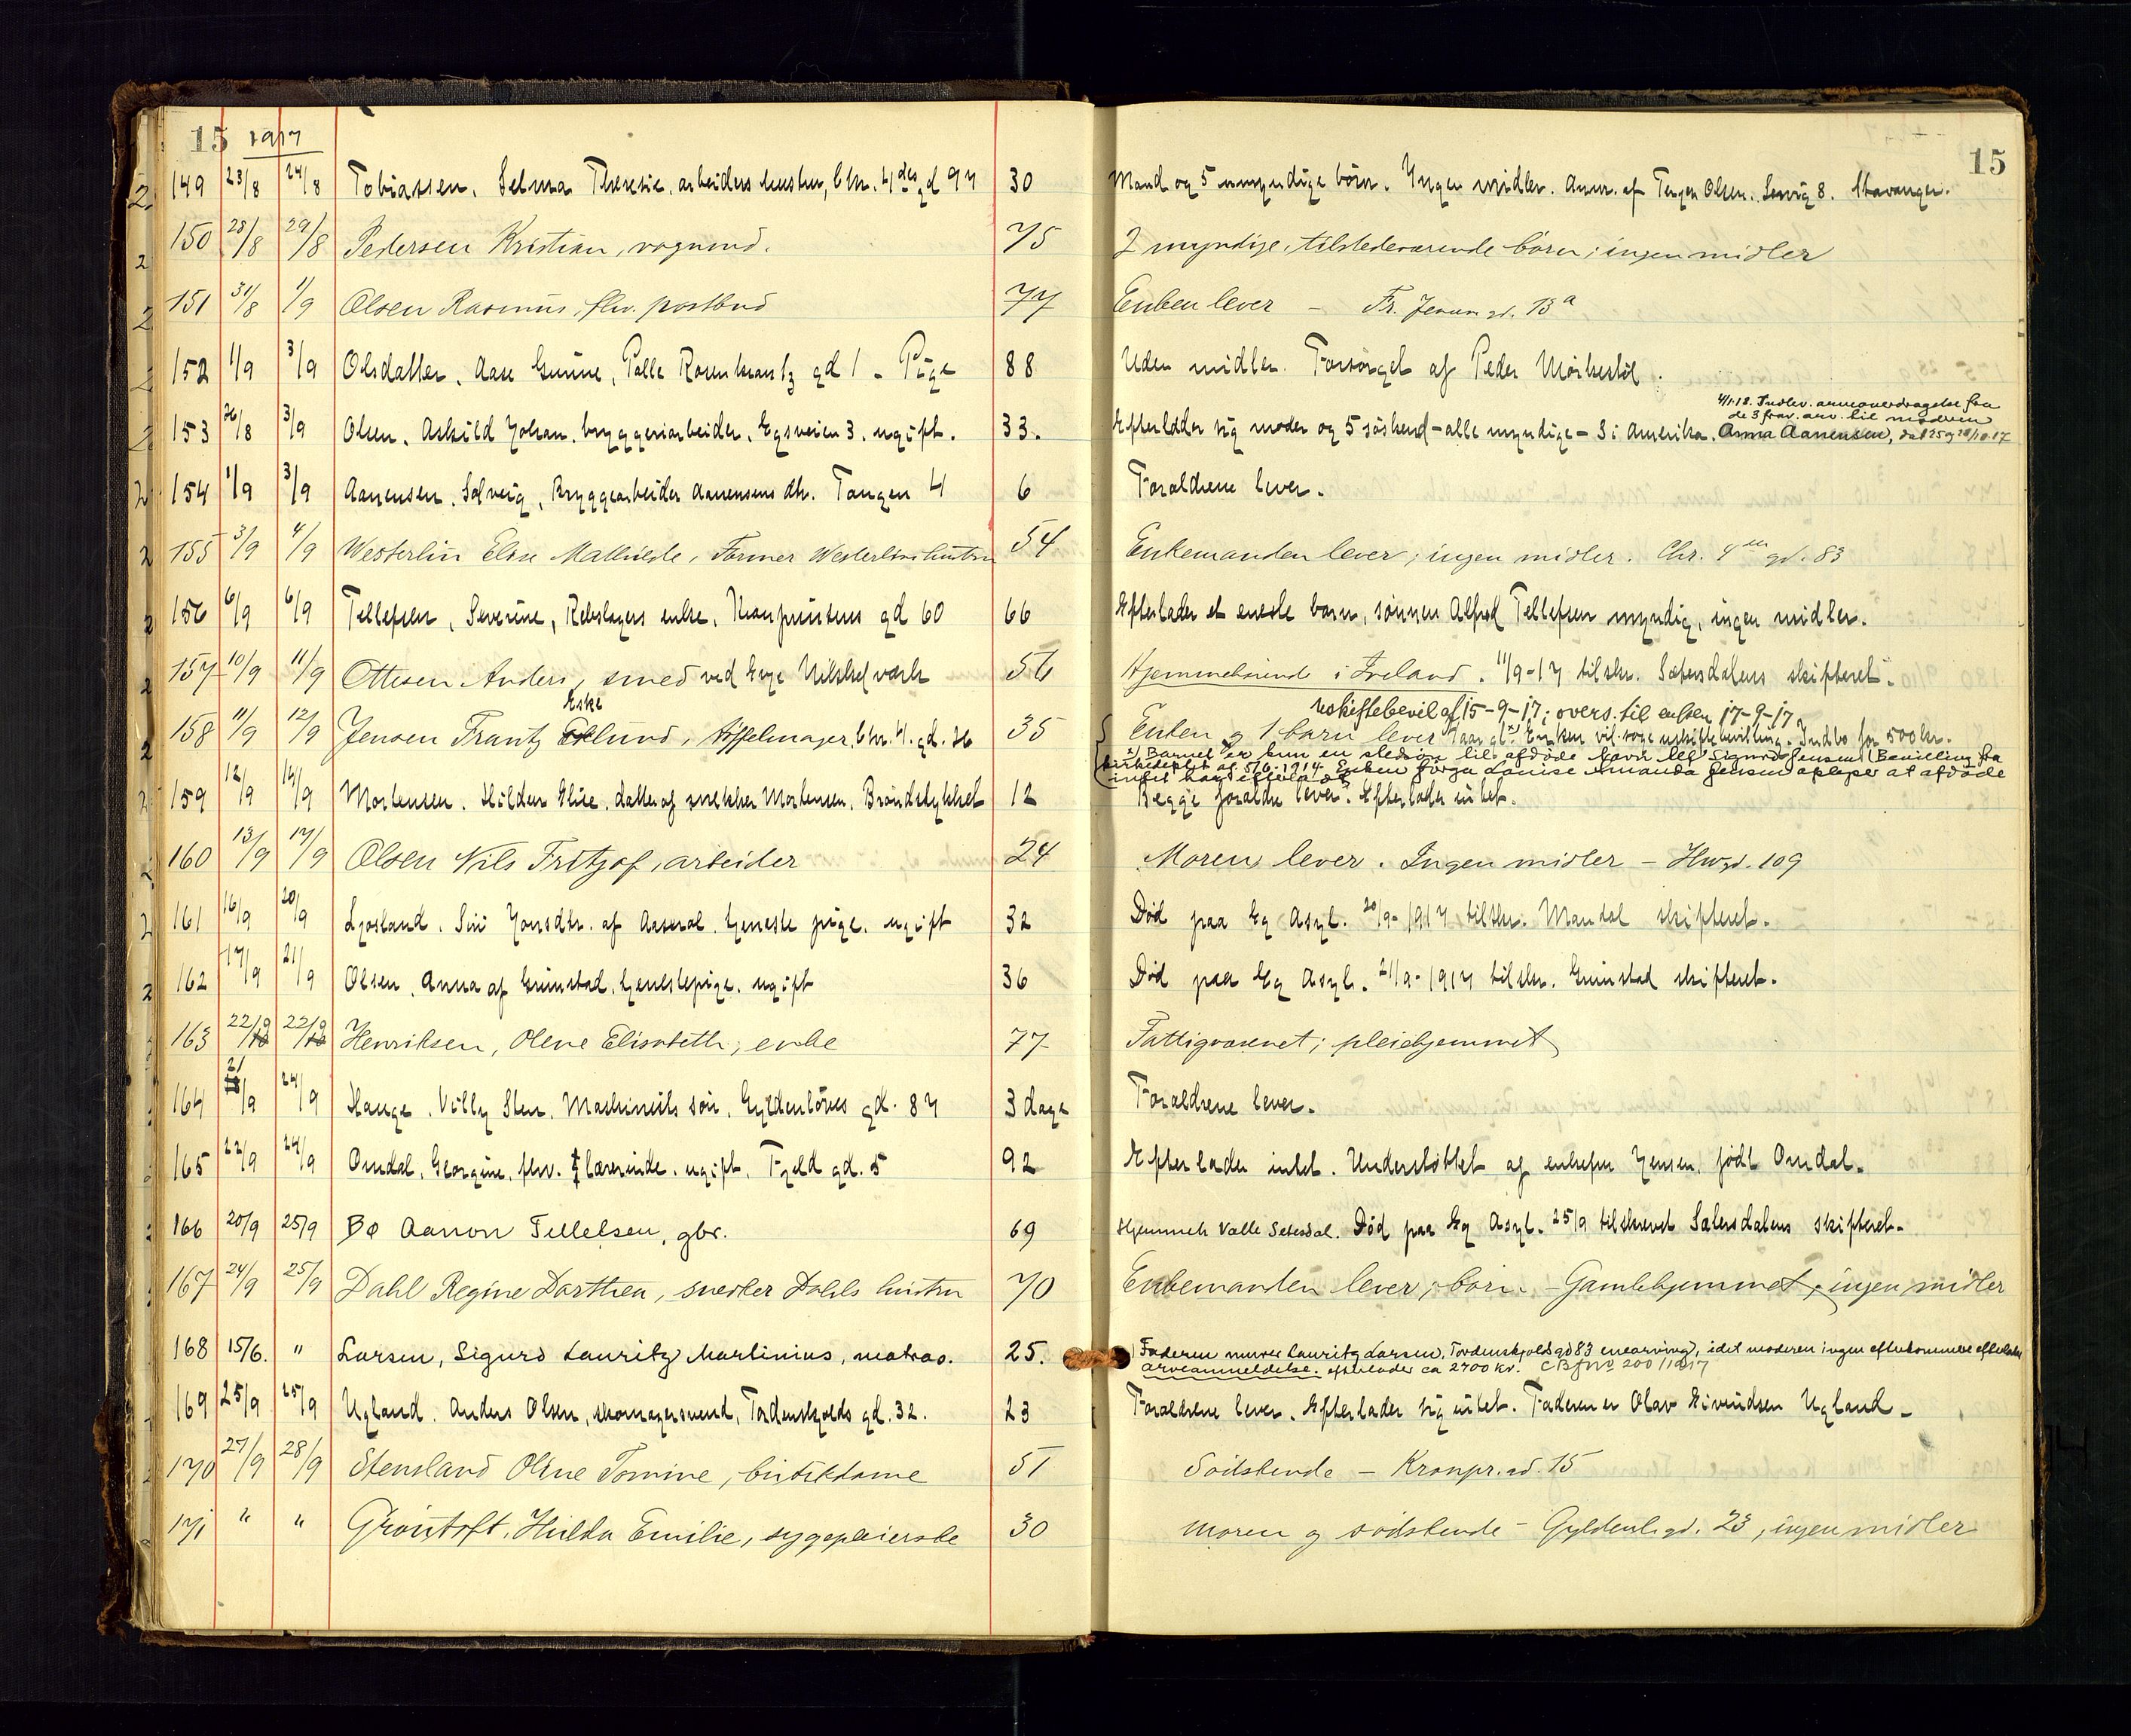 15 1917 15
149 23/8 24/8 Tobiassen, Selma Theresie, arbeiders hustru, Chr. 4des gd 97 30 Mand og 5 umyndige børn. Ingen midler. Anm. af Olsen. 8. Stavanger.
150 28/8 29/8 Pedersen Kristian, vognmd. 75 2 myndige, tilstedeværende børn; ingen midler
151 31/8 1/9 Olsen Rasmus, fhv. postbud 77 Enken lever – Fr. Jensens gd. 13a
152 1/9 3/9 Olsdatter, Aase Gurine, Palle Rosenkrantz gd 1 - Pige 88 Uden midler. Forsørget af Peder
4/1.18. Indlev. arveoverdragelse fra
de 3 frav. arv. til moderen
153 26/8 3/9 Olsen, Askild Johan, bryggeriarbeider, Egsveien 3, ugift. 33. Efterlader sig moder og 5 søskend – alle myndige – 3 i Amerika. Anna Aanensen, dat 25 og 28/10.17
154 1/9 3/9 Aanensen, Solveig, Bryggearbeider Aanensens dtr. Tangen 4 6 Forældrene lever.
155 3/9 4/9 Westerlin Elise Mathilde, Farmer Westerlins hustru 54 Enkemanden lever; ingen midler. Chr. 4des gd. 83
156 6/9 6/9 Tellefsen, Severine, Rebslagers enke, Kronprinsens gd 60 66 Efterlader et eneste barn, sønnen Alfred Tellefsen myndig, ingen midler.
157 10/9 11/9 Ottesen Anders, smed ved Evje Nikkelværk 56 Hjemmehørende i Iveland. 11/9-17 tilskr. Sætersdalens skifteret.
Eske uskiftebevil af 15-9-17; overs. til enken 17-9-17
158 11/9 12/9 Jensen Frantz lund, tøffelmager, Chr. 4. gd. 26 35 Enken og 1 barn lever 7 aar gl. x) Enken vil søge uskiftebevilling. Indbo for 500 kr.
x) Barnet er kun en stedsøn til afdøde navn Sigurd Jensen (Bevilling fra
af 5/6-1914. Enken Louise Amanda Jensen oplyser at afdøde
intet har efterladt
159 12/9 14/9 Mortensen, Hildur Elise, datter af snekker Mortensen, Brøndstykket 12 Begge forældre lever. Efterlader intet.
160 13/9 17/9 Olsen Nils Fritjof, arbeider 24 Moren lever. Ingen midler – gd. 109
161 16/9 20/9 Ljosland, Siri Jonsdtr. af Aaseral, tjeneste pige, ugift 32 Død paa Eg Asyl. 20/9-1917 tilskr. Mandal skifteret.
162 17/9 21/9 Olsen, Anna af Grimstad, tjenestepige, ugift 36 Død paa Eg Asyl. 21/9-1917 tilskr. Grimstad skifteret.
163 22/9 22/9 Henriksen, Olene Elisabeth, enke 77 Fattigvæsenet; pleiehjemmet
164 21/9 24/9 Hauge, Villy Sten, Maskinists søn, Gyldenløves gd. 87 3 dage Forældrene lever.
165 22/9 24/9 Omdal, Georgine, fhv. lærerinde, ugift, Fjeld gd. 5 92 Efterlader intet. Understøttet af enkefru Jensen, født Omdal.
166 20/9 25/9 Bø Aanon Tellefsen, gbr. 69 Hjemmeh Valle Setesdal. Død paa Eg Asyl. 25/9 tilskrevet Sætersdalens skifteret.
167 24/9 25/9 Dahl Regine Dorthea, snedker Dahls hustru 70 Enkemanden lever; børn. – Gamlehjemmet; ingen midler
168 15/6. " Larsen, Sigurd Lauritz Martinius, matros. 25. Faderen murer Lauritz Larsen, Tordenskjolds gd 83 enearving, idet moderen ingen efterkommere efterlader
arveanmeldelse. efterlader ca 2700 kr. 200/1917
169 25/9 25/9 Ugland, Anders Olsen, skomagersvend, Tordenskjolds gd. 32. 23 Forældrene lever. Efterlader sig intet. Faderen er Olav Eivindsen Ugland.
170 27/9 28/9 Stensland Oline Tomine, butikdame 51 Sødskende – Kronpr. gd. 15
171 " " Grøntoft, Hulda Emilie, sygepleierske 30 Moren og sødskende – Gyldenl. gd. 23, ingen midler